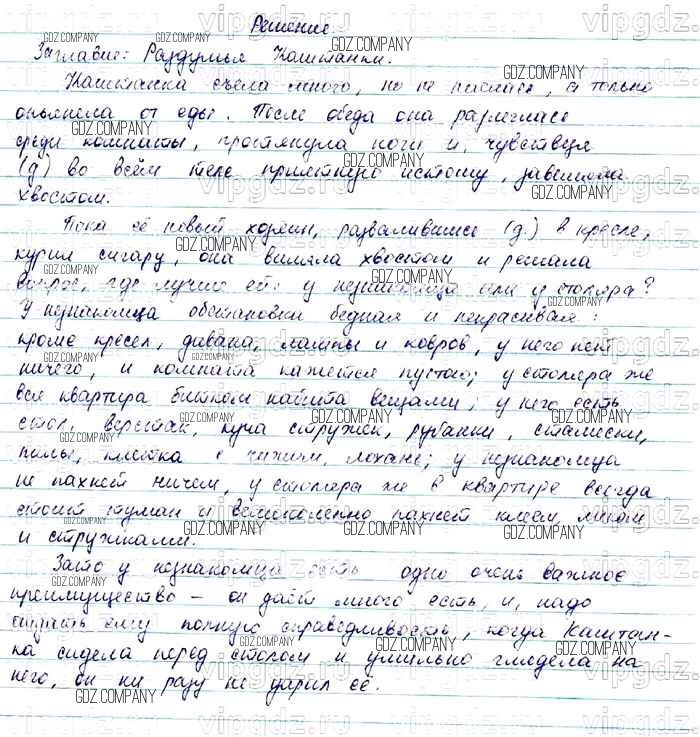 Решение.
Заглавие: Раздумья Каштанки.
Каштанка съела много, но не наелась, а только
опьянела от еды. После обеда она разлеглась
среди комнаты, протянула ноги и, чувствуя
(д) во всём теле приятную истому, завиляла
хвостом.
Пока её новый хозяин, развалившись (д.) в кресле,
курил сигару, она виляла хвостом и решала
вопрос, где лучше ей: у незнакомца или у столяра?
У незнакомца обстановки бедная и некрасивая:
кроме кресел, дивана, лампы и ковров, у него нет
ничего, и комната кажется пустою; у столяра же
вся квартира битком набита вещами; у него есть
стол, верстак, куча стружек, рубанки, стамески,
пилы, клетка с чижиком, лохань; у незнакомца
не пахнет ничем, у столяра же в квартире всегда
стоит туман и великолепно пахнет клеем, лаком
и стружками.
Зато у незнакомца есть одно очень важное
преимущество — он даёт много есть, и, надо
отдать ему полную справедливость, когда Каштан-
ка сидела перед столом и умильно глядела на
него, он ни разу не ударил её.